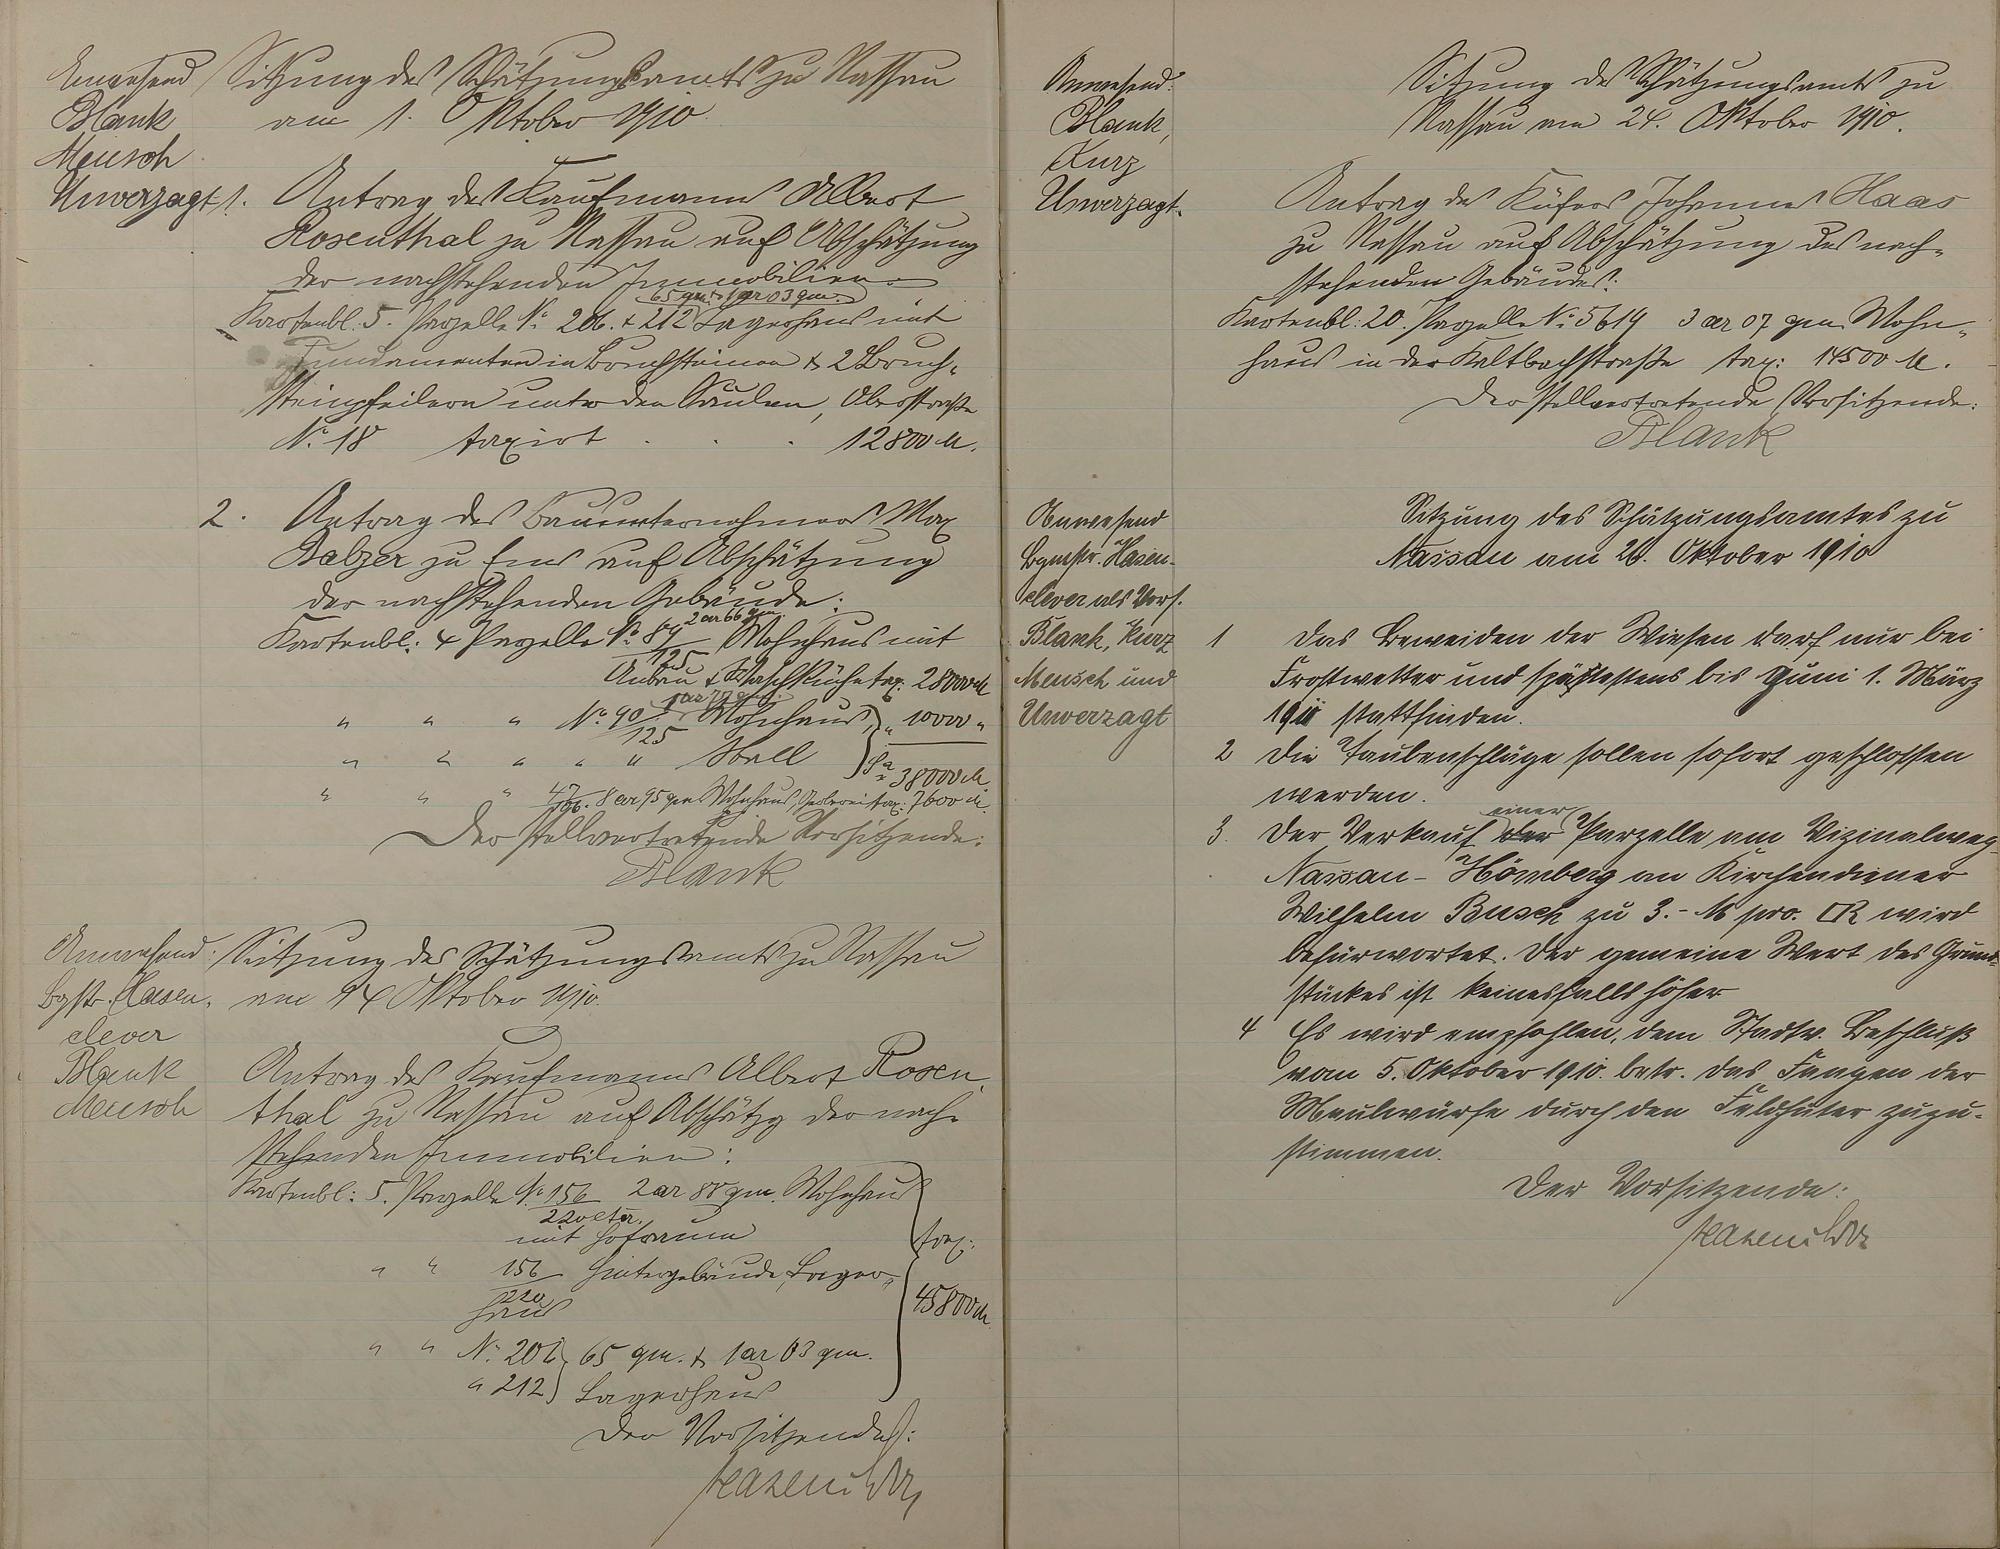 Anwesend
Blank
Meusch
Unverzagt
Sitzung des Schätzungsamts zu Nassau
am 1. Oktober 1910.
1. Antrag des Kaufmanns Albert
Rosenthal zu Nassau auf Abschätzung
der nachstehenden Immobilien
65 qm. + 1 ar 03 qm.
Kartenbl. 5. Parzelle No 206. + 212 Lagerhaus mit
Fundamenten in Bruchsteinen & 2 Bruch-
steinpfeilern unter den Säulen, Oberstraße
No 18 taxirt . . . 12800 M.
2. Antrag des Bauunternehmers Max
Balzer zu Ems auf Abschätzung
der nachstehenden Gebäude:
2 ar 66 qm
Kartenbl. 4 Parzelle No 89/125 Wohnhaus mit
Anbau & Waschküche tax. 28000 M
1 ar 77 qm.
" " " No 90/125 Wohnhaus, " 10000 "
" " " " " Stall Sa 38000 M
" " " 47/106. 8 ar 95 qm Wohnhaus, tax: 7600 M.
Der stellvertretende Vorsitzende:
Blank
Anwesend:
Bgstr. Hasen-
clever
Blank
Meusch
Sitzung des Schätzungsamts zu Nassau
am 14 Oktober 1910.
Antrag des Kaufmanns Albert Rosen-
thal zu Nassau auf Abschätzg der nach-
stehenden Immobilien:
Kartenbl: 5. Parzelle No 156/220 etc. 2 ar 88 qm. Wohnhaus
mit Hofraum
" " 156/220 Hintergebäude, Lager-
haus
tax:
45800 M.
" " No 206 65 qm. & 1 ar 03 qm.
" 212 Lagerhaus
Der Vorsitzende:
Hasenclever
Anwesend:
Blank,
Kurz
Unverzagt.
Sitzung des Schätzungsamts zu
Nassau am 24. Oktober 1910.
Antrag des Küfers Johannes Haas
zu Nassau auf Abschätzung des nach-
stehenden Gebäudes:
Kartenbl: 20. Parzelle No 5614 3 ar 07 qm Wohn-
haus in der Kaltbachstraße tax: 14500 M.
Der stellvertretende Vorsitzende:
Blank
Anwesend
Bgmstr. Hasen-
clever als Vors.
Blank, Kurz
Meusch und
Unverzagt
Sitzung des Schätzungsamtes zu
Nassau am 26. Oktober 1910
1 Das Beweiden der Wiesen darf nur bei
Frostwetter und spätestens bis Juni 1. März
1911 stattfinden.
2 Die Taubenschläge sollen sofort geschlossen
werden.
einer
3. Der Verkauf der Parzelle am Vizinalweg
Nassau - Hömberg an Kirchendiener
Wilhelm Busch zu 3.- M pro. □R wird
befürwortet. Der gemeine Wert des Grund-
stückes ist keinesfalls höher
4 Es wird empfohlen, dem Stadtv. Beschluß
vom 5. Oktober 1910. betr. das Fangen der
Maulwürfe durch den Feldhüter zuzu-
stimmen.
Der Vorsitzende:
Hasenclever